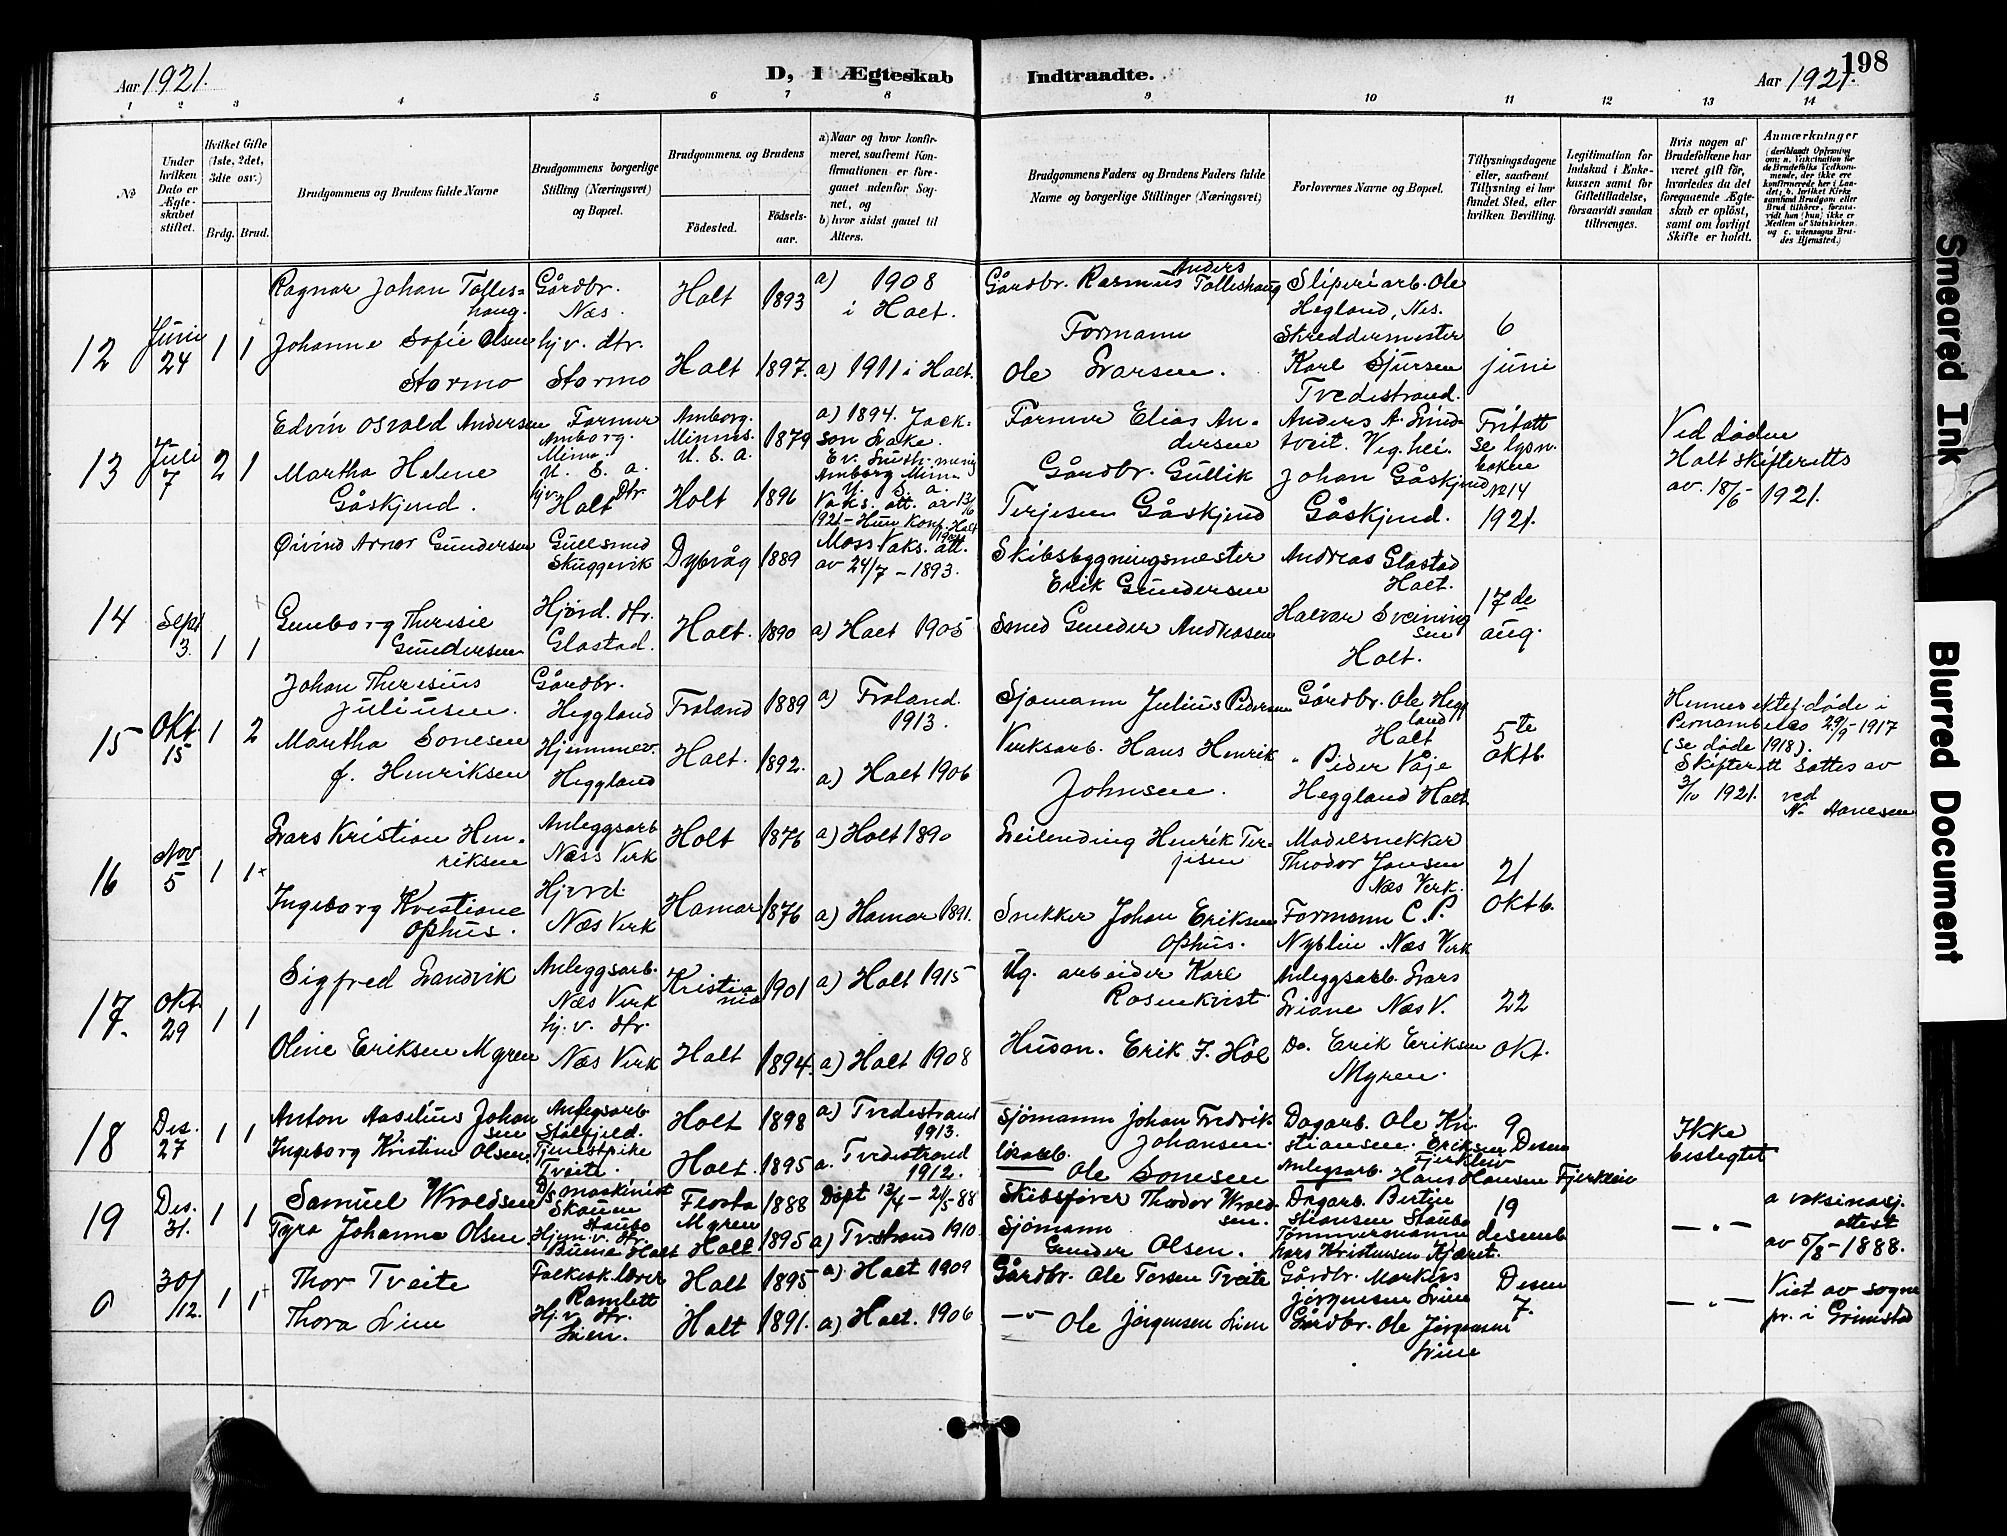 Aar 1921.
D, I Ægteskab Indtraadte.
Aar 1921.
198
1 2 3 4 5 6 7 8 9 10 11 12 13 14
No
Under hvilken Dato er Ægteskabet stiftet.
Hvilket Gifte (1ste, 2det, 3die osv.)
Brdg. Brud.
Brudgommens og Brudens fulde Navne
Brudgommens borgerlige Stilling (Næringsvei) og Bopæl.
Brudgommens og Brudens
Födested.
Födselsaar.
a) Naar og hvor konfirmeret, saafremt Konfirmationen er foregaaet udenfor Sognet, og
b) hvor sidst gaaet til Alters.
Brudgommens Faders og Brudens Faders fulde Navne og borgerlige Stillinger (Næringsvei)
Forlovernes Navne og Bopæl.
Tillysningsdagene eller, saafremt Tillysning ei har fundet Sted, efter hvilken Bevilling.
Legitimation for Indskud i Enkekassen samt for Giftetilladelse, forsaavidt saadan tiltrænges.
Hvis nogen af Brudefolkene har været gift för, hvorledes da det foregaaende Ægteskab er oplöst, samt om lovligt Skifte er holdt.
Anmærkninger
12
Juni 24
1 1
Ragnar Johan Tolleshaug.
Gårdbr. Næs.
Holt 1893
a) 1908 i Holt.
Gårdbr. Rasmus Anders Tolleshaug
Sliperiarb. Ole Hegland, Nes.
6 juni
Johanne Sofie Olsen Stormo
hjv. dtr. Stormo
Holt 1897.
a) 1911 i Holt.
Formann Ole Larsen.
Skreddermester Karl Sjursen Tvedestrand.
13
Juli 7
2 1
Edvin Osvald Andersen
Farmer Amborg. Minn. U. S. a.
Amborg. Minnes. U. S. A. 1879
a) 1894. Jackson Lake. Ev. Luth. menig Amborg Minn. U. S. a. Vaks. att. av 13/6 1921 - Hun konf. Holt
Farmer Elias Andersen
Anders A. Lindtveit. Veg.hei.
Fritatt se lysn. boken No 14 1921.
Ved døden Holt skifteretts av 18/6 - 1921.
Martha Helene Gåskjend.
hjv. dtr. Holt
Holt 1896
Gårdbr. Gullik Terjesen Gåskjend
Johan Gåskjend Gåskjend.
14
Sept 3.
1 1
Øivind Arner Gundersen
Gullsmed Skuggevik
Dybvåg 1889
Moss Vaks. att. av 24/7 - 1893.
Skibsbygningsmester Erik Gundersen
Andreas Glastad Holt.
17de aug.
Gunborg Theresie Gundersen
Hjv.d. dtr. Glastad.
Holt. 1890
a) Holt 1905
Smed Gunder Andreasen
Halvar Sveiningsen Holt.
15
Okt 15
1 2
Johan Theresius Juliusen.
Gårdbr. Heggland
Froland 1889
a) Froland. 1913.
Sjømann Julius Pedersen
Gårdbr. Ole Heggland Holt
5te oktb.
Hennes ektef. døde i Pernambuco 29/9 - 1917 (se døde 1918). Skifterett sattes av 3/10 1921. ved N. Hanesen
Martha Sonesen f. Henriksen
Hjemmev. Heggland
Holt. 1892.
a) Holt 1906
Verksarb. Hans Henrik Johnsen.
" Peder Våje Heggland Holt
16
Nov 5
1 1
Lars Kristian Henriksen
Anleggsarb Næss Verk
Holt 1876
a) Holt 1890
Leilending Henrik Terjesen
Modelsnekker Theodor Jansen Næs Verk.
21 oktb.
Ingeborg Kristiane Ophus.
Hjv.d. Næs Verk
Hamar 1876
a) Hamar 1891.
Snekker Johan Eriksen Ophus.
Formann C. P. Nyblin. Næs Verk
17.
Okt 29
1 1
Sigfred Landvik
Anleggsarb. Næs Verk
Kristiania 1901
a) Holt 1915
Ug. arbeider Karl Rosenkvist
Anleggsarb. Lars Liane Næs V.
22 okt.
Oline Eriksen Myren
hj. v. dtr. Næs Verk
Holt 1894.
a) Holt 1908
Husm. Erik J. Høl
Do. Erik Eriksen Myren.
18
Des. 27
1 1
Anton Aaselius Johansen
Anlegsarb Stølfjeld.
Holt 1898
a) Tvedestrand 1913.
Sjømann Johan Fredrik Johansen.
Dagarb. Ole Kristiansen. Eriksen Fjerkleiv
9 Desem
Ikke besvigtet
Ingeborg Kristine Olsen.
Tjenestpike Tveite.
Holt. 1895
a. Tvedestrand 1912.
løsarb. Ole Sonesen
Anlegsarb. Hans Hansen Fjerkleiv
19
Des. 31.
1 1
Samuel Wroldsen
D/S maskinist Skaunn Staubo
Flosta 1888
Døpt 13/4 - 21/5 88
Skibsfører Thodor Wroldsen.
Dagarb. Bertin Stiansen Staubo
19 desemb
— " —
a vaksinasj. attest av 5/8 - 1888.
Tyra Johanne Olsen.
Hjem.v. dtr. Buene Holt
Myren Holt 1895
a) Tv.strand 1910.
Sjømann Gunder Olsen.
Tømmermann Lars Kristensen Kjæret.
0
30/12.
1 1
Thor Tveite
Folkesk.lærer Ramlett
Holt 1895
a) Holt 1909
Gårdbr. Ole Torsen Tveite
Gårdbr. Markus Jørgensen Lien
Desem 7.
— " —
Viet av sogne pr. i Grimstad
Thora Lien
Hj. v. dtr. Lien.
Holt 1891.
a) Holt. 1906
— " — Ole Jørgensen Lien
Gårdbr. Ole Jørgensen Lien
Smeared Ink
Blurred Document